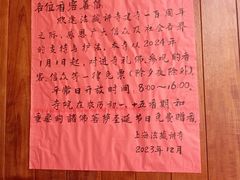 各位有缘善信
欣逢法藏讲寺建寺一百周年
之际,感恩广大信众及社会各界
的支持与护法,本寺从2024年
1月1日起,对进寺礼佛、参观的香
客、信众等一律免票(除夕夜除外)
平常日开放时间:8:00~16:00。
寺院在农历初一、十五香期和
重要的诸佛菩萨圣诞节日免费赠香。
上海法藏讲寺
2023年12月